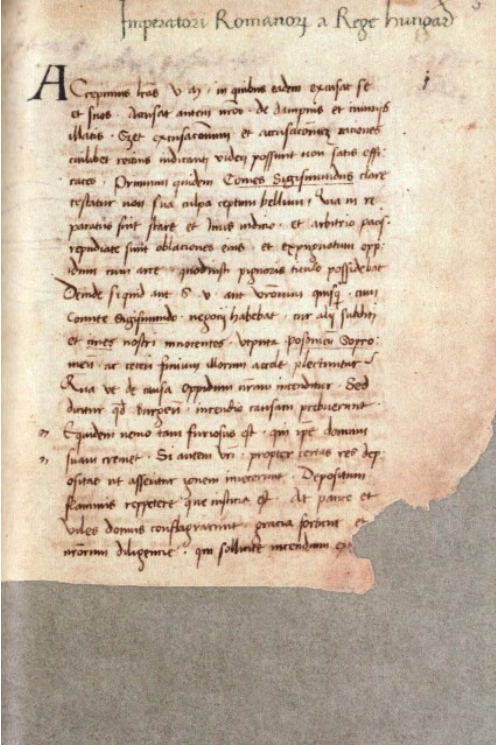 Imperatori Romanorꝝ a Rege hungarͦ
j
ACcepimus lr̄as v m · in quibus eadem excusat se
et suos · Accusat autem nr̄os · de dampnis et iniuriis
illatis · Szet excusacionum et accusacionum raciones
cuilibet rectius iudicanti videri possunt non satis effi
caces · Primum quidem Comes Sigismundus clare
testatur non sua culpa ceptum bellum · Quia in re
paratis sint stare et iudicio · et arbitrio
repudiate sunt oblaciones eius · et expugnatum opp
idum cum arce · pignoris titulo possidebat
Deinde si quid aut S · v · aut vr̄orum quisq̄ · cum
Comite Sigismundo · negocij habebat · cur alij subditi
et nostri innocentes · Sopro
men̄ · ac ceteri finium illorum accole plectuntur
Qua ve de causa oppidum nr̄um incenditur · Sed
dicitur qd̄ · incendio causam prebuerunt
Equidem nemo tam furiosus est · qui ip̄e domum
suam cremet · Si autem vr̄i · propter certas res dep
ositas ut asseritur ignem iniecerunt · Depositum
flammis repetere que iusticia est · At pauce et
viles domus conflagrarunt · gracia et
nr̄orum diligencie · qui sollicite incendium